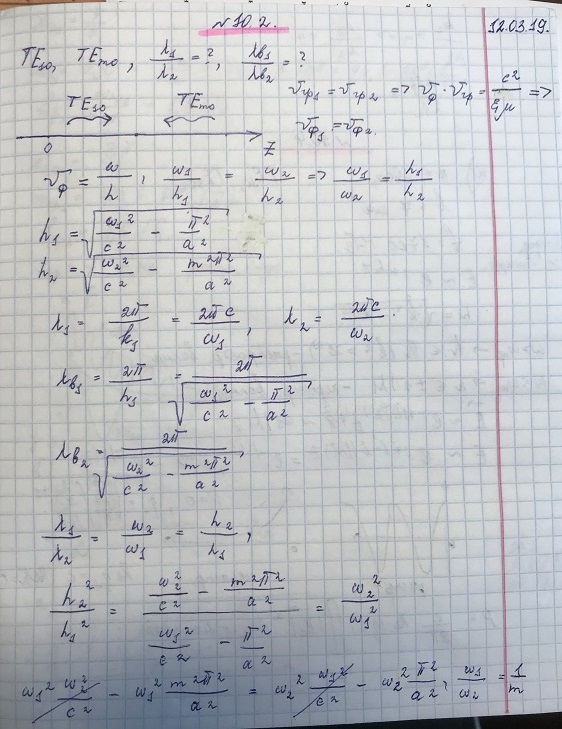 №10.2.
12.03.19.
TE₁₀, TEₘ₀, λ₁/λ₂ = ?, λв₁/λв₂ = ?
vгр₁ = vгр₂ => vф · vгр = c²/εμ =>
vф₁ = vф₂.
TE₁₀ → TEₘ₀ ←
0 z
vф = ω/h, ω₁/h₁ = ω₂/h₂ => ω₁/ω₂ = h₁/h₂
h₁ = √(ω₁²/c² - π²/a²)
h₂ = √(ω₂²/c² - m²π²/a²)
λ₁ = 2π/k₁ = 2πc/ω₁, λ₂ = 2πc/ω₂.
λв₁ = 2π/h₁ = 2π/√(ω₁²/c² - π²/a²)
λв₂ = 2π/√(ω₂²/c² - m²π²/a²),
λ₁/λ₂ = ω₂/ω₁ = h₂/h₁,
h₂²/h₁² = (ω₂²/c² - m²π²/a²)/(ω₁²/c² - π²/a²) = ω₂²/ω₁²
ω₁² ω₂²/c² - ω₁² m²π²/a² = ω₂² ω₁²/c² - ω₂² π²/a², ω₁/ω₂ = 1/m